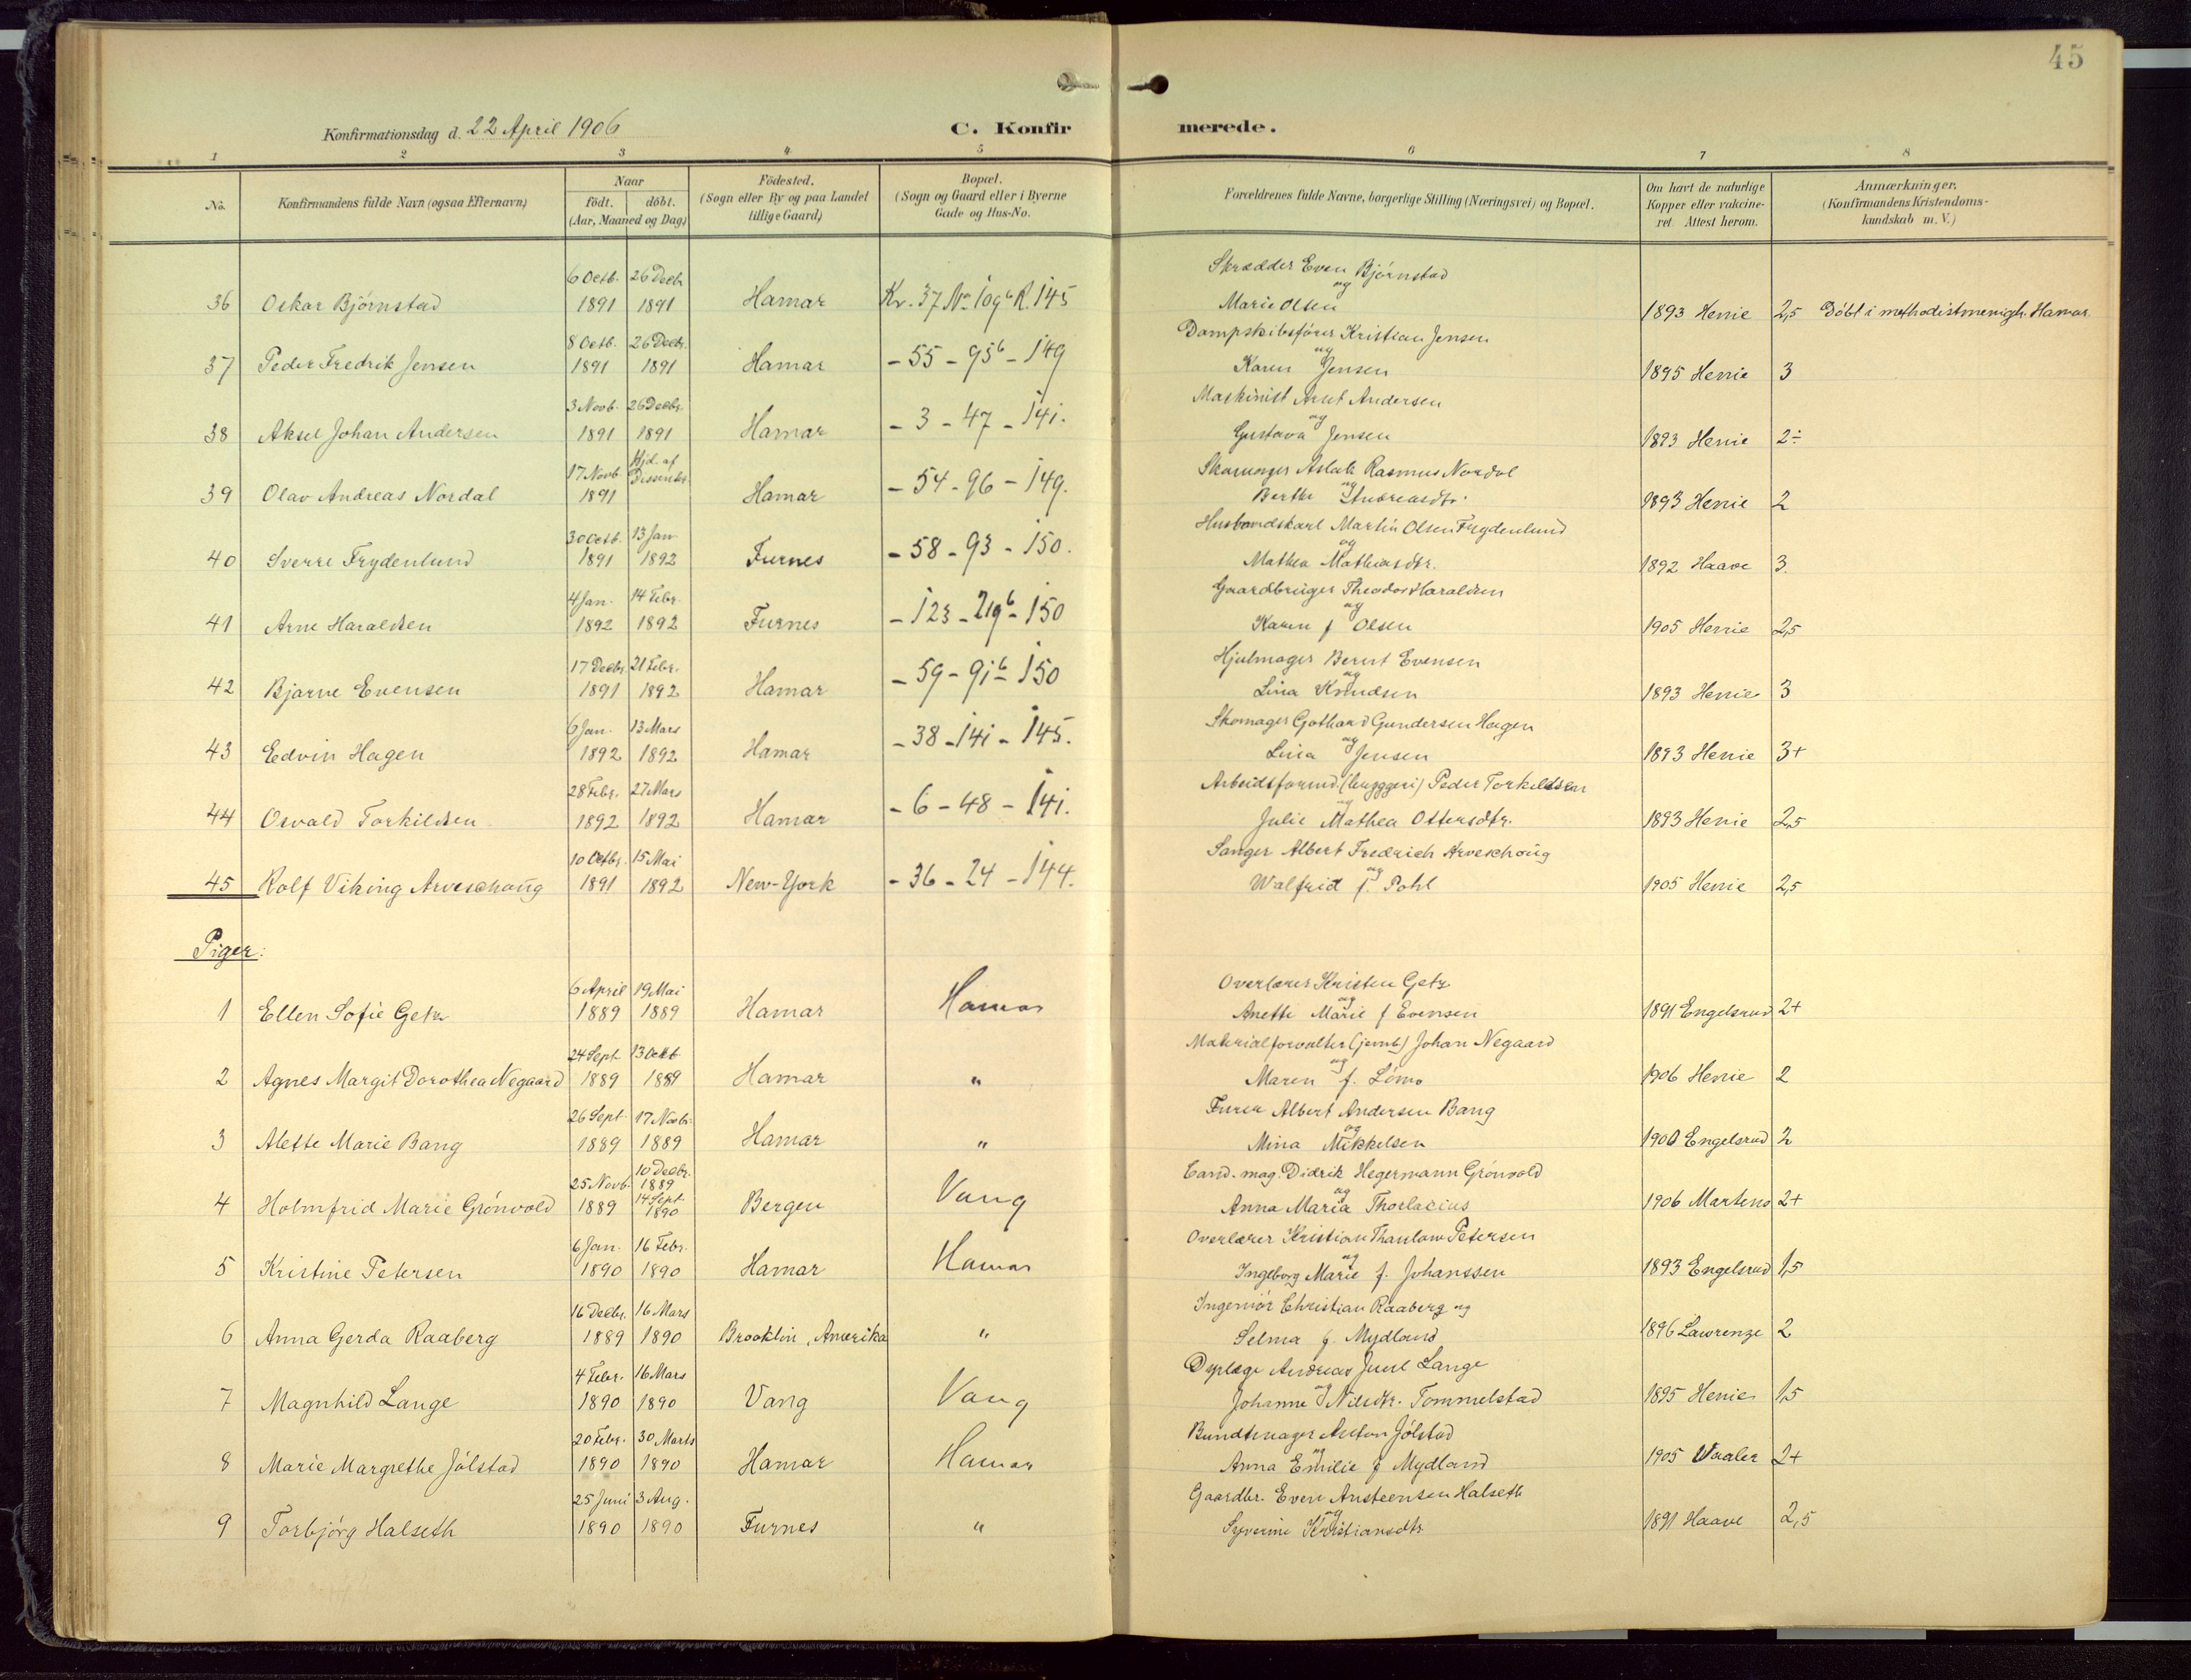 45
Konfirmationsdag d. 22 April 1906
C. Konfirmerede.
1 2 3 4 5 6 7 8
No. Konfirmandens fulde Navn (ogsaa Efternavn) Naar født. døbt. (Aar, Maaned og Dag) Födested. (Sogn eller By og paa Landet tillige Gaard) Bopæl. (Sogn og Gaard eller i Byerne Gade og Hus-No. Forældrenes fulde Navne, borgerlige Stilling (Næringsvei) og Bopæl. Om havt de naturlige Kopper eller vakcineret. Attest herom. Anmærkninger. (Konfirmandens Kristendomskundskab m. V.)
6 Octb. 26 Decbr. Skrædder Even Bjørnstad og
36 Oskar Bjørnstad 1891 1891 Hamar Kr. 37 No 109b R. 145 Marie Olsen 1893 Henie 2,5 Døbt i methodistmenigh. Hamar.
8 Octb. 26 Decbr. Dampskibsfører Kristian Jensen og
37 Peder Fredrik Jensen 1891 1891 Hamar - 55 - 95b - 149 Karen Jensen 1895 Henie 3
3 Novb. 26 Decbr. Maskinist Arnt Andersen og
38 Aksel Johan Andersen 1891 1891 Hamar - 3 - 47 - 141. Gustava Jensen 1893 Henie 2÷
17 Novb. Hjd. af Dissenter. Aslak Rasmus Nordal og
39 Olav Andreas Nordal 1891 Hamar - 54 - 96 - 149. Berthe Andreasdtr. 1893 Henie 2
30 Octb. 13 Jan. Husbandskarl Martin Olsen Frydenlund og
40 Sverre Frydenlund 1891 1892 Furnes - 58 - 93 - 150. Mathea Mathiasdtr. 1892 Haave 3.
4 Jan. 14 Febr. Gaardbruger Theodor Haraldsen og
41 Arne Haraldsen 1892 1892 Furnes - 123 - 219b - 150 Karen f Olsen 1905 Henie 2,5
17 Decbr. 21 Febr. Hjulmager Bernt Evensen og
42 Bjarne Evensen 1891 1892 Hamar - 59 - 91b - 150 Lina Knudsen 1893 Henie 3
6 Jan. 13 Mars Skomager Gothard Gundersen Hagen og
43 Edvin Hagen 1892 1892 Hamar - 38 - 141 - 145. Lina Jensen 1893 Henie 3+
28 Febr. 27 Mars Arbeidsformd. (bryggeri) Peder Torkildsen og
44 Osvald Torkildsen 1892 1892 Hamar - 6 - 48 - 141. Julie Mathea Ottersdtr. 1893 Henie 2,5
10 Octbr. 15 Mai Sanger Albert Fredrich Arveschoug og
45 Rolf Viking Arveschoug 1891 1892 New-York - 36 - 24 - 144. Walfrid f. Pohl 1905 Henie 2,5
Piger:
6 April 19 Mai Overlærer Kristen Getz og
1 Ellen Sofie Getz 1889 1889 Hamar Hamar Anette Marie f Evensen 1891 Engelsrud 2+
24 Sept 13 Octb Materialforvalter (jernb.) Johan Negaard og
2 Agnes Margit Dorothea Negaard 1889 1889 Hamar " Maren f. Lömo 1906 Henie 2
26 Sept. 17 Novbr. Furer Albert Andersen Bang og
3 Alette Marie Bang 1889 1889 Hamar " Mina Mikkelsen 1900 Engelsrud 2
25 Novb. 10 Decbr. 1889 Cand. mag. Didrik Hegermann Grönvold og
4 Holmfrid Marie Grönvold 1889 14 Sept. 1890 Bergen Vang Anna Maria Thorlacius 1906 Martens 2+
6 Jan. 16 Febr. Overlærer Kristian Thaulow Petersen og
5 Kristine Petersen 1890 1890 Hamar Hamar Ingeborg Marie f. Johanssen 1893 Engelsrud 1,5
16 Decbr. 16 Mars Ingeniör Christian Raaberg og
6 Anna Gerda Raaberg 1889 1890 Brooklin, Amerika " Selma f. Mydland 1896 Lawrenze 2
4 Febr. 16 Mars Dyrlæge Andreas Juul Lange og
7 Magnhild Lange 1890 1890 Vang Vang Johanne Nilsdtr. Tommelstad 1895 Henie 1,5
20 Febr. 30 Marts Bundtmager Anton Jölstad og
8 Marie Margrethe Jölstad 1890 1890 Hamar Hamar Anna Emilie f Mydland 1905 Vaaler 2+
25 Juni 3 Aug. Gaardbr. Even Austeensen Halseth og
9 Torbjörg Halseth 1890 1890 Furnes " Syverine Kristiansdtr 1891 Haave 2,5